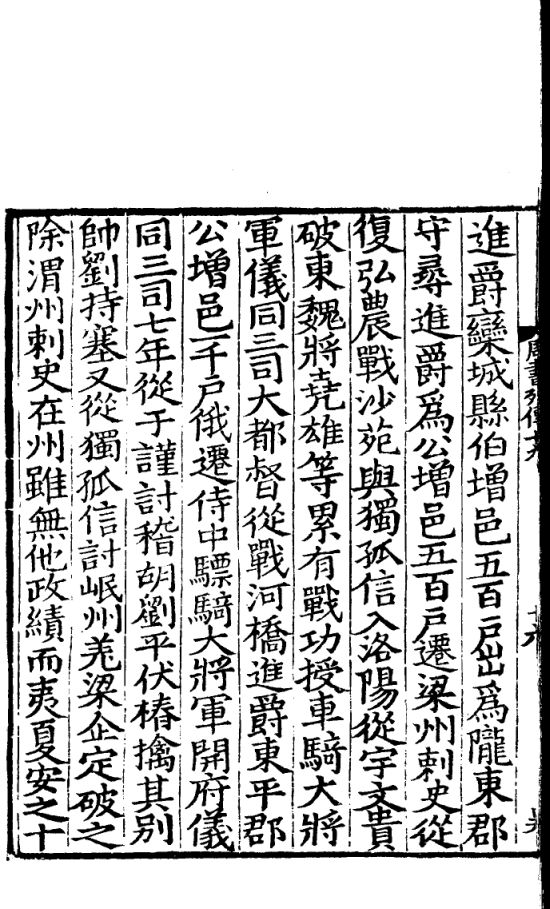 進爵欒城縣伯增邑五百戸出爲隴東郡
守尋進爵爲公增邑五百戸遷梁州刺史從
復弘農戰沙苑與獨孤信入洛陽從宇文貴
破東魏將堯雄等累有戰功授車騎大將
軍儀同三司大都督從戰河橋進爵東平郡
公增邑一千戸俄遷侍中驃騎大將軍開府儀
同三司七年從于謹討稽胡劉平伏椿擒其别
帥劉持塞又從獨孤信討岷州羌梁企定破之
除渭州刺史在州雖無他政績而夷夏安之十